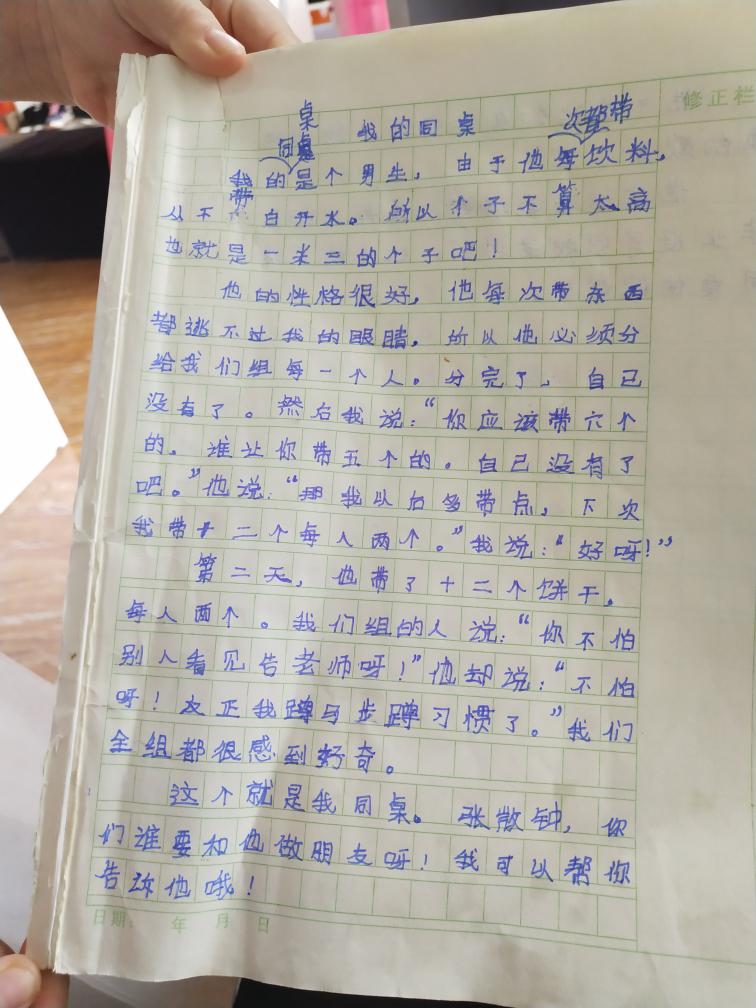 我的同桌
我的同桌是个男生，由于他每次都带饮料，
从不带白开水。所以个子不算太高
也就是一米三的个子吧！
他的性格很好，他每次带东西
都逃不过我的眼睛，所以他必须分
给我们组每一个人。分完了，自己
没有了。然后我说：“你应该带六个
的。谁让你带五个的。自己没有了
吧。”他说：“那我以后多带点，下次
我带十二个每人两个。”我说：“好呀！”
第二天，他带了十二个饼干。
每人两个。我们组的人说：“你不怕
别人看见告老师呀！”他却说：“不怕
呀！反正我蹲马步蹲习惯了。”我们
全组都很感到好奇。
这个就是我同桌。张散钟，你
们谁要和他做朋友呀！我可以帮你
告诉他哦！
修正栏
日期： 年 月 日